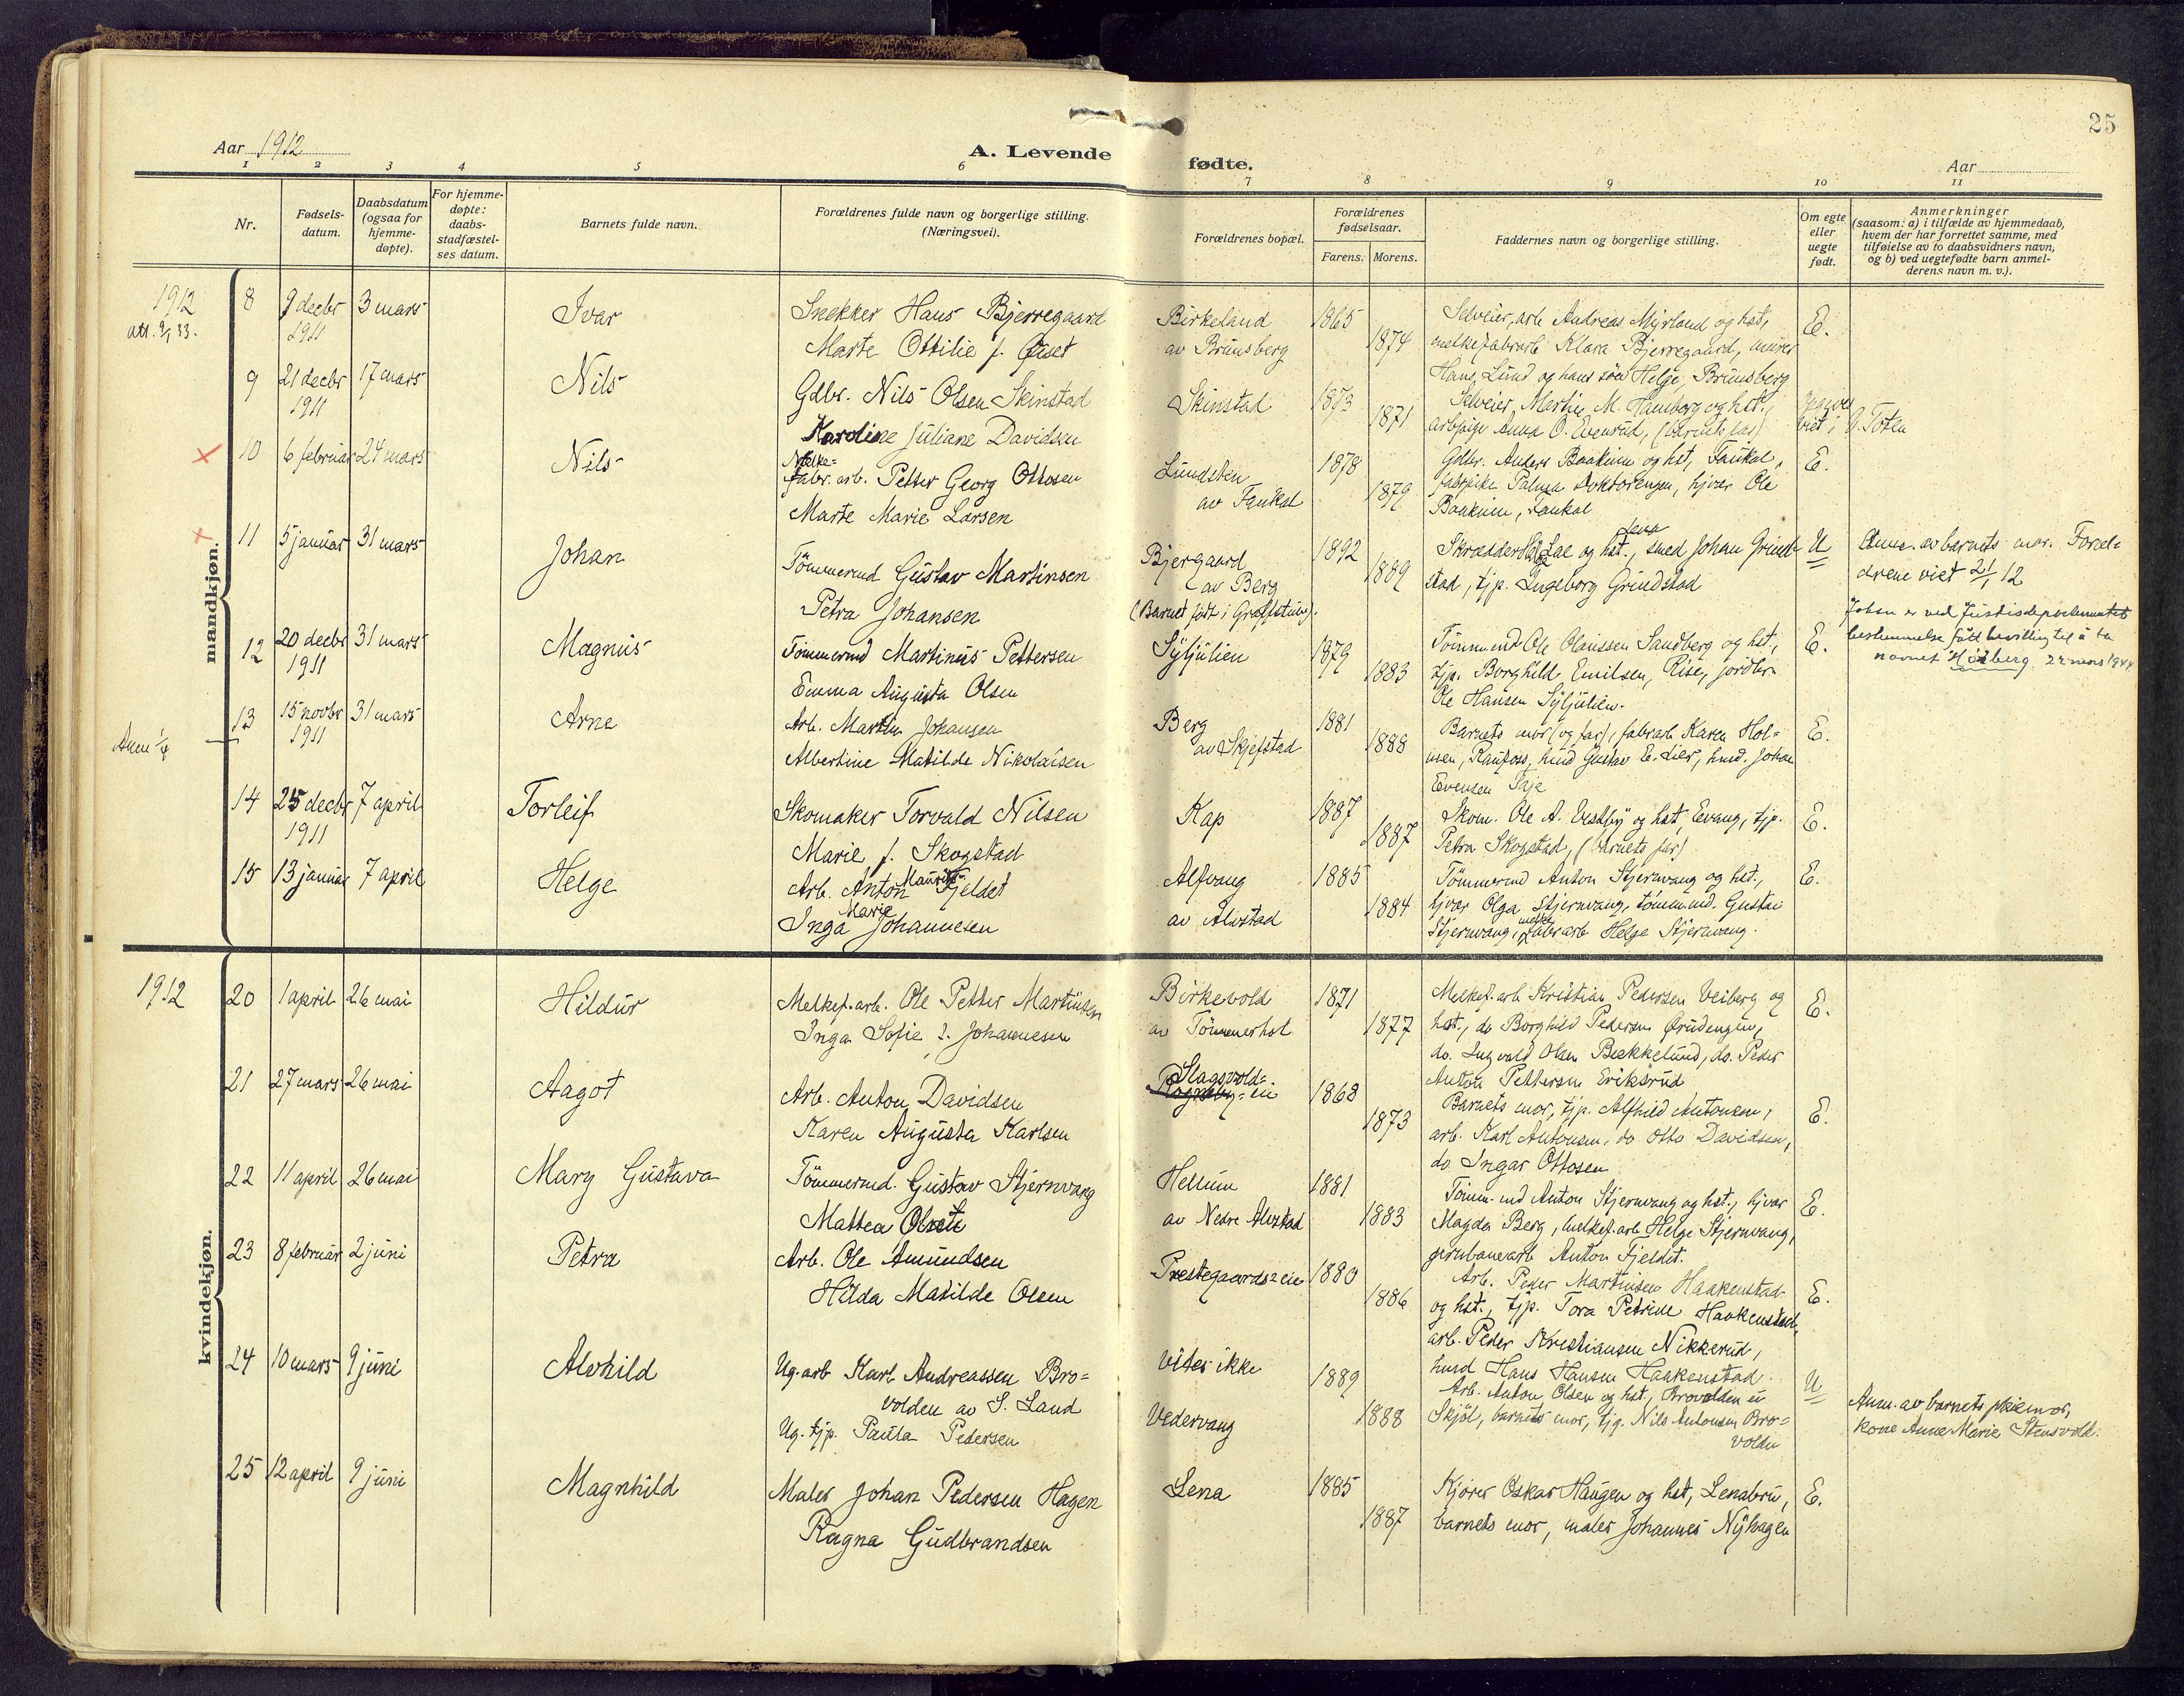 25
Aar 1912
A. Levende fødte.
Aar
1 2 3 4 5 6 7 8 9 10 11
Nr.
Fødsels-
datum.
Daabsdatum
(ogsaa for
hjemme-
døpte).
For hjemme-
døpte:
daabs-
stadfæstel-
ses datum.
Barnets fulde navn.
Forældrenes fulde navn og borgerlige stilling.
(Næringsvei).
Forældrenes bopæl.
Forældrenes
fødselsaar.
Farens. Morens.
Faddernes navn og borgerlige stilling.
Om egte
eller
uegte
født.
Anmerkninger
(saasom: a) i tilfælde av hjemmedaab,
hvem der har forrettet samme, med
tilføielse av to daabsvidners navn,
og b) ved uegtefødte barn anmel-
derens navn m. v.).
mandkjøn.
1912
att. 9/1 33.
8 9 decbr 1911 3 mars Ivar
Snekker Hans Bjerregaard
Marte Ottilie f. Øiset
Birkeland
av Brunsberg
1865 1874
Selveier, arb Andreas Myrland og hst,
melkefabrarb Klara Bjerregaard, murer
Hans Lund og hans søn Helge, Brunsberg
E.
9 21 decbr 1911 17 mars Nils
Gdbr. Nils Olsen Skinstad
Karoline Juliane Davidsen
Skinstad
1873 1871
Selveier, Martin M. Hamborg og hst.,
arbpige Anna O. Evenrud, (barnets far)
viet i Ø. Toten
10 6 februar 24 mars Nils
Melke=
fabr. arb. Petter Georg Ottosen
Marte Marie Larsen
Lundsten
av Faukal
1878 1879
Gdbr. Anders Baakinn og hst, Faukal,
fabrpike Palma Doktorengen, hjvær Ole
Baakinn, Faukal
E.
11 5 januar 31 mars Johan
Tömmermd Gustav Martinsen
Petra Johansen
Bjergaard
av Berg
(Barnet født i Graffstuen).
1892 1889
Skrædder Lae og hst., smed Johan Grind-
stad, tjp. Ingeborg Grindstad
U
Anm. av barnets mor. Foræl-
drene viet 21/1 12
Johan er ved Justisdepartementets
bestemmelse fått bevilling til å ta
navnet Høiberg. 22 mars 1944
12 20 decbr 1911 31 mars Magnus
Tömmermd Martinus Pettersen
Emma Augusta Olsen
Syljulien
1879 1883
Tömmermd Ole Olaussen Sandberg og hst,
tjp. Borghild Emilsen, Rise, jordbr.
Ole Hansen Syljulien.
E.
13 15 novbr 1911 31 mars Arne
Arb. Martin Johansen
Albertine Matilde Nikolaisen
Berg
av Skjefstad
1881 1888
Barnets mor (og far), fabrarb Karen Hol-
men, Raufoss, hmd Gustav E. Lier, hmd. Johan
Evensen Faje
E.
14 25 decbr 1911 7 april Torleif
Skomaker Torvald Nilsen
Marie, f. Skogstad
Kap
1887 1887
Skom. Ole A. Vestby og hst, Evang, tjp.
Petra Skogstad, (barnets far)
E.
15 13 januar 7 april Helge
Arb. Anton Maurits Fjeldet
Inga Marie Johannesen
Alfvang
av Alvstad
1885 1884
Tömmermd Anton Stjernvang og hst.,
hjvær Olga Stjernvang, tömmermd. Gustav
Stjernvang, melkefabrarb Helge Stjernvang.
E.
kvindekjøn.
1912
20 1 april 26 mai Hildur
Melkef. arb. Ole Petter Martinsen
Inga Sofie f. Johannesen
Birkevold
av Tömmerhol
1871 1877
Melkef. arb Kristian Pedersen Veiberg og
hst., do Borghild Pedersen Ørudengen,
do. Ingvald Olsen Bækkelund, do. Peder
Anton Pettersen Eriksrud
E.
21 27 mars 26 mai Aagot
Arb. Anton Davidsen
Karen Augusta Karlsen
Slagsvold-
eie
1868 1873
Barnets mor, tjp. Alfhild Antonsen,
arb. Karl Antonsen, do Otto Davidsen,
do Ingar Ottosen
E.
22 11 april 26 mai Mary Gustava
Tömmermd. Gustav Stjernvang
Mattea Olsen
Hellum
av Nedre Alvstad
1881 1883
Tömm. md Anton Stjernvang og hst., hjvær
Magda Berg, melkef. arb Helge Stjernvang,
jernbanearb Anton Fjeldet.
E.
23 8 februar 2 juni Petra
Arb. Ole Amundsen
Hilda Matilde Olsen
Prestegaards=eie
1880 1886
Arb. Peder Martinsen Haakenstad
og hst., tjp. Tora Petrine Haakenstad,
arb. Peder Kristiansen Nikkerud,
hmd Hans Hansen Haakenstad.
E.
24 10 mars 9 juni Alvhild
Ug. arb Karl Andreassen Bro=
volden av S. Land
Ug. tjp. Paula Pedersen
Vites ikke
Vedervang
1889 1888
Arb. Anton Olsen og hst, Brovolden u
Skjöl, barnets mor, tjg. Nils Antonsen Bro=
volden
U
Anm. av barnets pleiemor,
kone Anne Marie Stensvold.
25 12 april 9 juni Magnhild
Maler Johan Pedersen Hagen
Ragna Gudbrandsen
Lena
1885 1887
Kjører Oskar Haugen og hst, Lenabru,
barnets mor, maler Johannes Nyhagen
E.